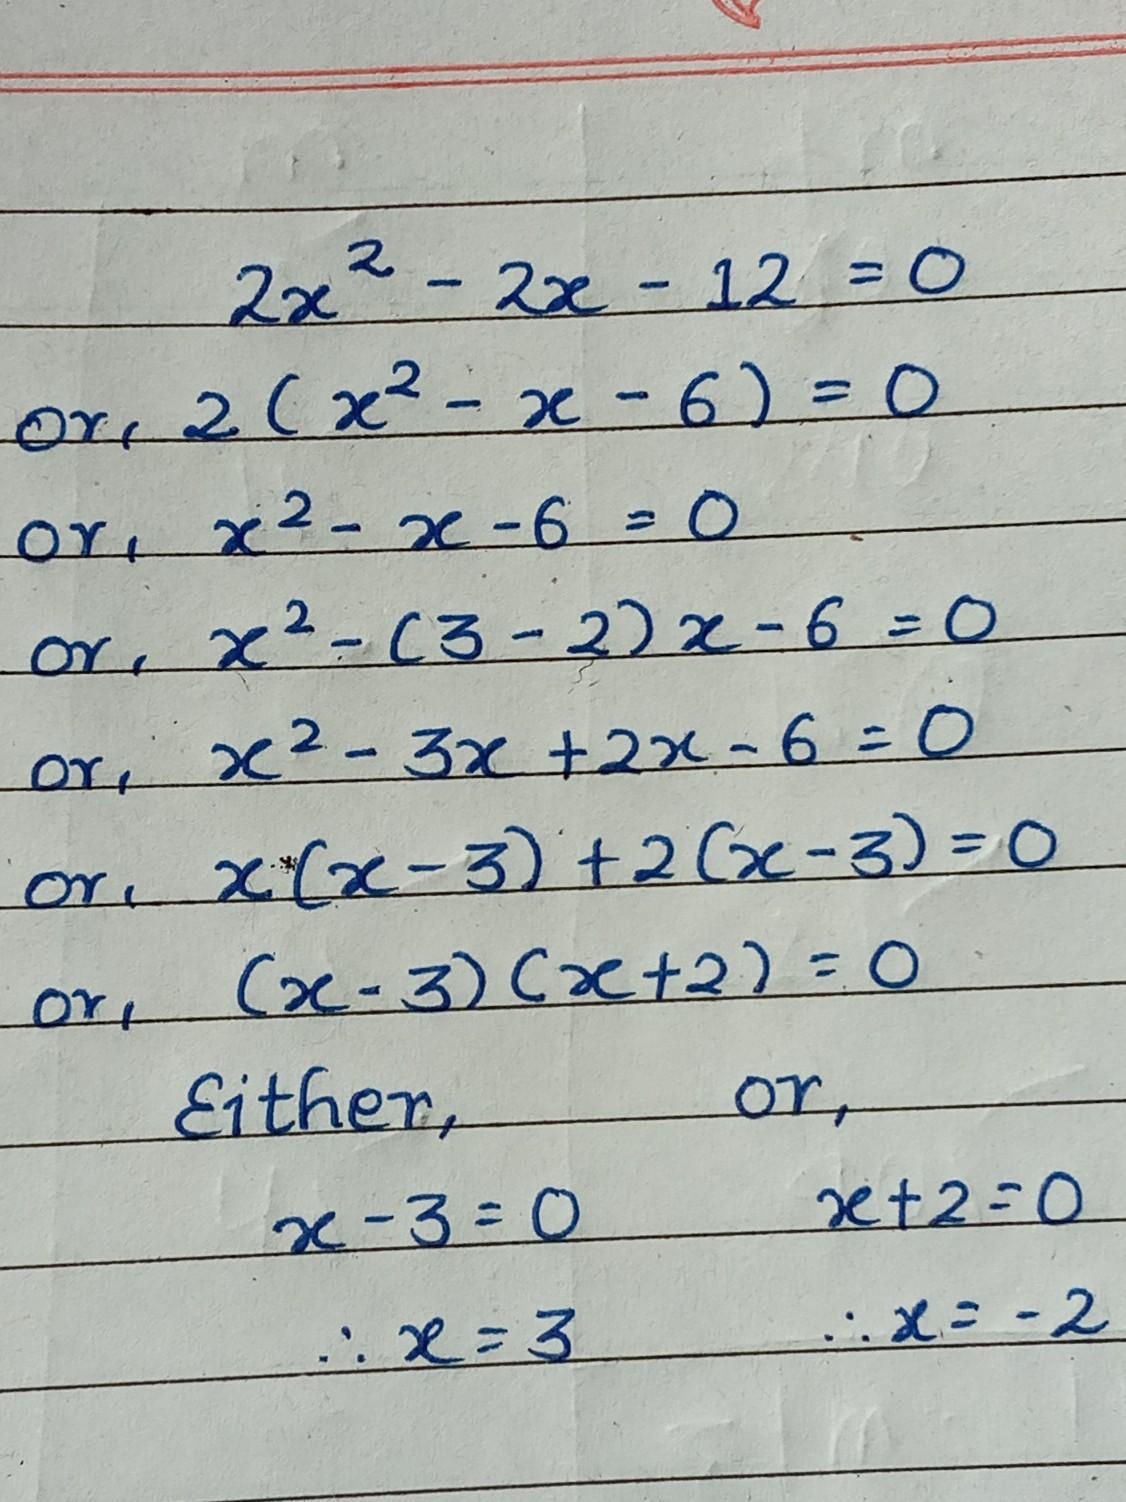 2x² - 2x - 12 = 0
or, 2(x² - x - 6) = 0
or, x² - x - 6 = 0
or, x² - (3 - 2)x - 6 = 0
or, x² - 3x + 2x - 6 = 0
or, x(x - 3) + 2(x - 3) = 0
or, (x - 3)(x + 2) = 0
Either, or,
x - 3 = 0 x + 2 = 0
∴ x = 3 ∴ x = -2